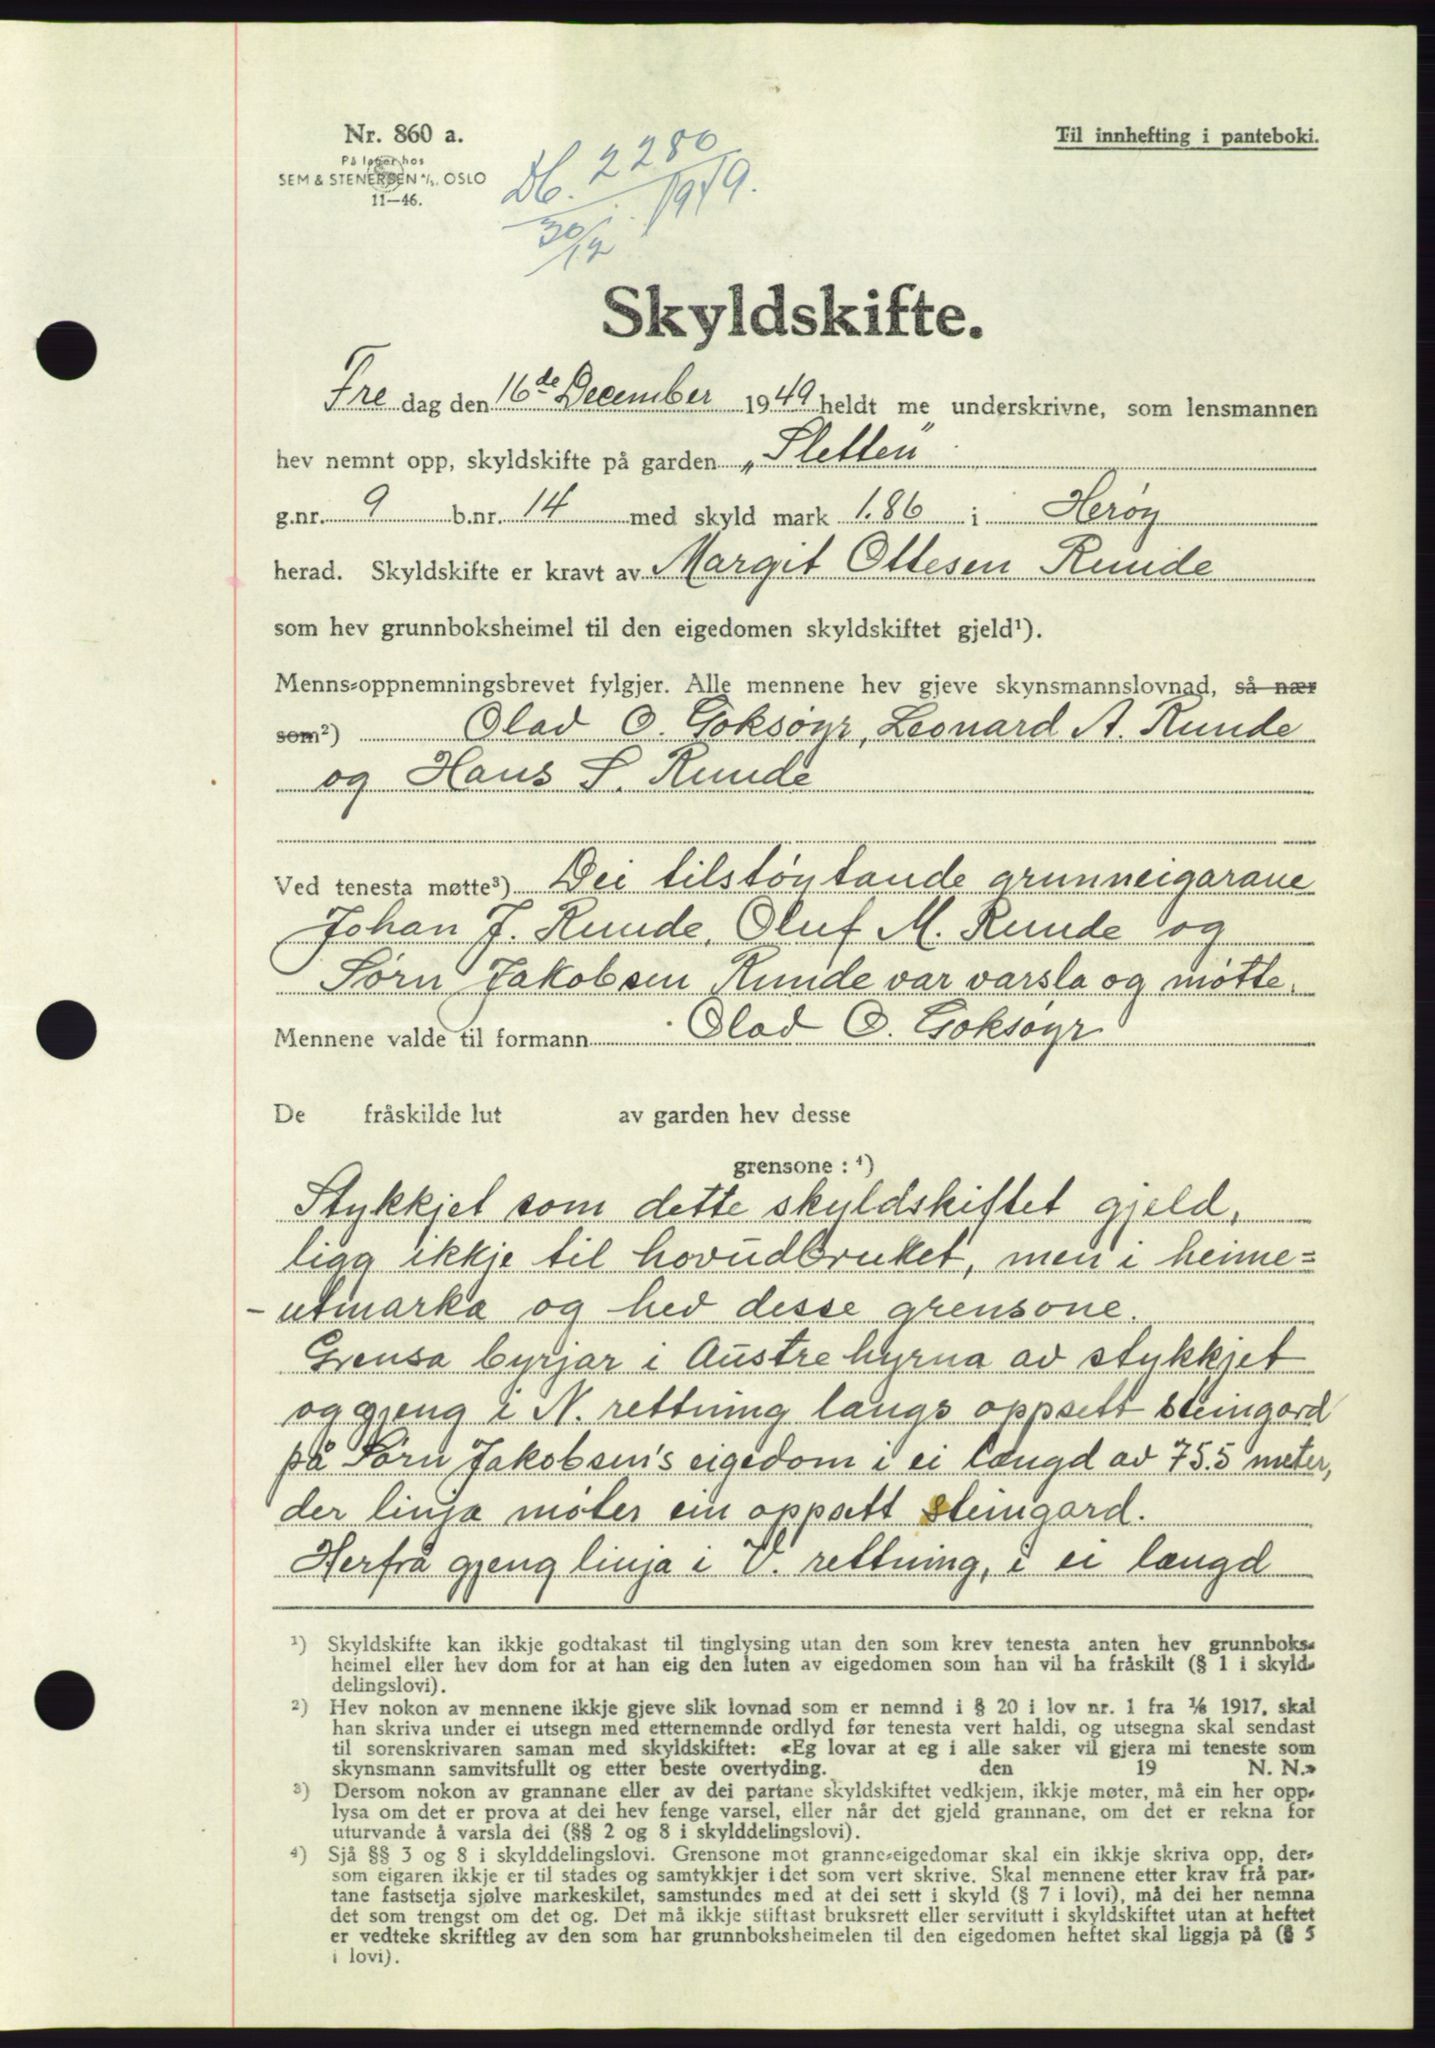 Nr. 860 a.
På lager hos
SEM & STENERSEN A/S. OSLO
11—46.
Db. 2280/1949.
30/12
Til innhefting i panteboki.
Skyldskifte.
Fre dag den 16de December 1949 heldt me underskrivne, som lensmannen
hev nemnt opp, skyldskifte på garden „Sletten"
g.nr. 9 b.nr. 14 med skyld mark 1.86 i Herøy
herad. Skyldskifte er kravt av Margit Ottesen Runde
som hev grunnboksheimel til den eigedomen skyldskiftet gjeld¹).
Menns-oppnemningsbrevet fylgjer. Alle mennene hev gjeve skynsmannslovnad, så nær
som²) Olad O. Goksøyr, Leonard A. Runde
og Hans S. Runde
Ved tenesta møtte³) Dei tilstøytande grunneigarane
Johan J. Runde, Oluf M. Runde og
Sørn Jakobsen Runde var varsla og møtte.
Mennene valde til formann Olad O. Goksøyr
De fråskilde lut av garden hev desse
grensone : ⁴)
Stykkjet som dette skyldskiftet gjeld,
ligg ikkje til hovudbruket, men i heime=
-utmarka og hev desse grensone.
Grensa byrjar i Austre hyrna av stykkjet
og gjeng i N. rettning langs oppsett steingard
på Sørn Jakobsen's eigedom i ei længd av 75.5 meter,
der linja møter ein oppsett steingard.
Herfrå gjeng linja i V. rettning, i ei længd
¹) Skyldskifte kan ikkje godtakast til tinglysing utan den som krev tenesta anten hev grunnboks-
heimel eller hev dom for at han eig den luten av eigedomen som han vil ha fråskilt (§ 1 i skyld-
delingslovi).
²) Hev nokon av mennene ikkje gjeve slik lovnad som er nemnd i § 20 i lov nr. 1 fra 1/6 1917, skal
han skriva under ei utsegn med etternemnde ordlyd før tenesta vert haldi, og utsegna skal sendast
til sorenskrivaren saman med skyldskiftet: «Eg lovar at eg i alle saker vil gjera mi teneste som
skynsmann samvitsfullt og etter beste overtyding. den 19 N. N.»
³) Dersom nokon av grannane eller av dei partane skyldskiftet vedkjem, ikkje møter, må ein her opp-
lysa om det er prova at dei hev fenge varsel, eller når det gjeld grannane, om det er rekna for
uturvande å varsla dei (§§ 2 og 8 i skylddelingslovi).
⁴) Sjå §§ 3 og 8 i skylddelingslovi. Grensone mot granne-eigedomar skal ein ikkje skriva opp, der-
som eigaren ikkje er til stades og samtykkjer i det som vert skrive. Skal mennene etter krav frå par-
tane fastsetja sjølve markeskilet, samstundes med at dei sett i skyld (§ 7 i lovi), må dei her nemna
det som trengst om det og. Det må ikkje stiftast bruksrett eller servitutt i skyldskiftet utan at heftet
er vedteke skriftleg av den som har grunnboksheimelen til den eigedomen heftet skal liggja på (§ 5
i lovi).